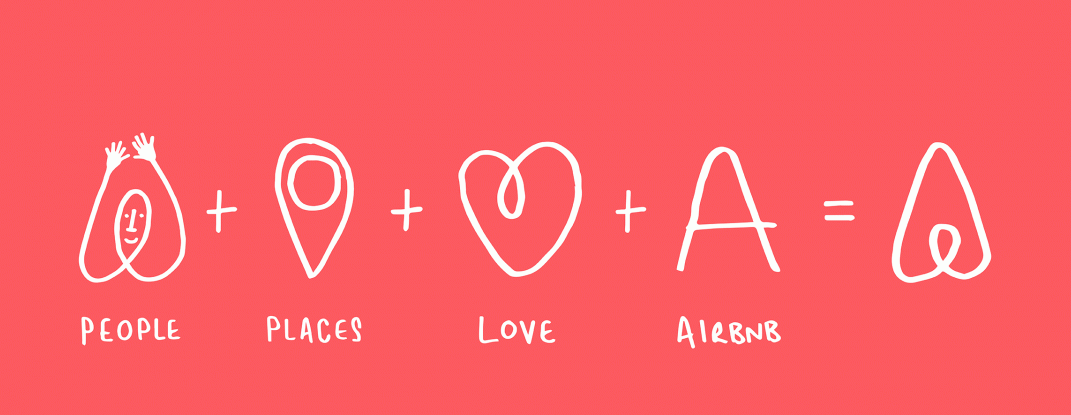 + + + A =
PEOPLE PLACES LOVE AIRBNB